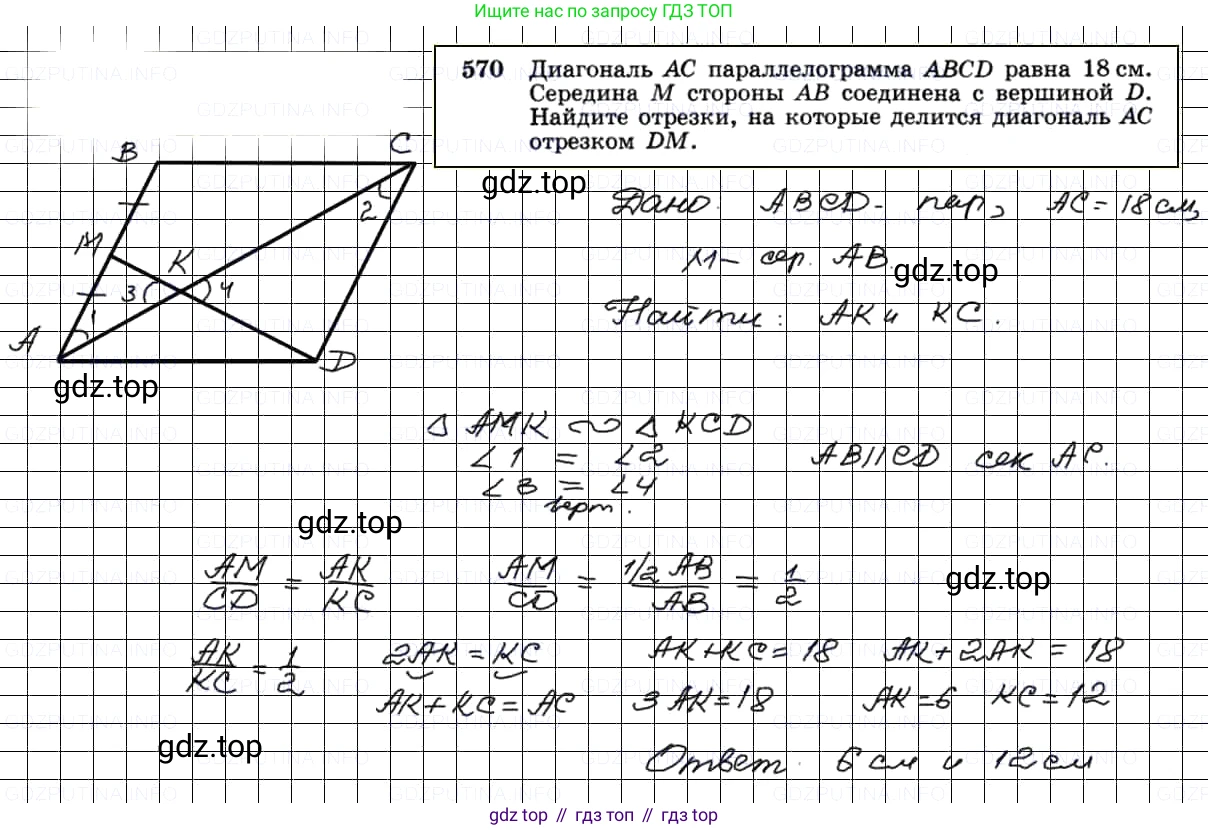 Ищите нас по запросу ГДЗ ТОП
570 Диагональ AC параллелограмма ABCD равна 18 см.
Середина M стороны AB соединена с вершиной D.
Найдите отрезки, на которые делится диагональ AC
отрезком DM.
B
C
gdz.top
2
Дано: ABCD- пар, AC = 18 см,
M
K
M- сер. AB.
gdz.top
3
4
1
Найти: AK и KC.
A
D
gdz.top
Δ AMK ∾ Δ KCD
∠1 = ∠2 AB||CD сек AC.
∠3 = ∠4
верт.
gdz.top
AM/CD = AK/KC AM/CD = 1/2 AB/AB = 1/2
gdz.top
AK/KC = 1/2 2AK = KC AK+KC = 18 AK + 2AK = 18
AK + KC = AC 3 AK = 18 AK = 6 KC = 12
gdz.top
Ответ: 6 см и 12 см
gdz top // гдз топ // gdz top
GDZPUTINA.INFO